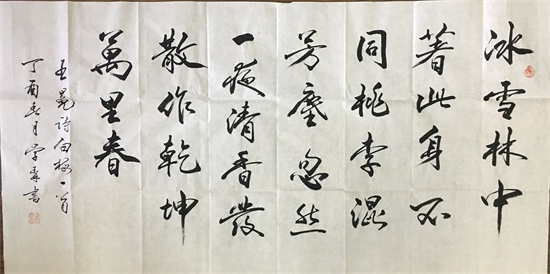 冰雪林中
著此身不
同桃李混
芳塵忽然
一夜清香發
散作乾坤
萬里春
王冕诗白梅一首
丁酉春月学森书